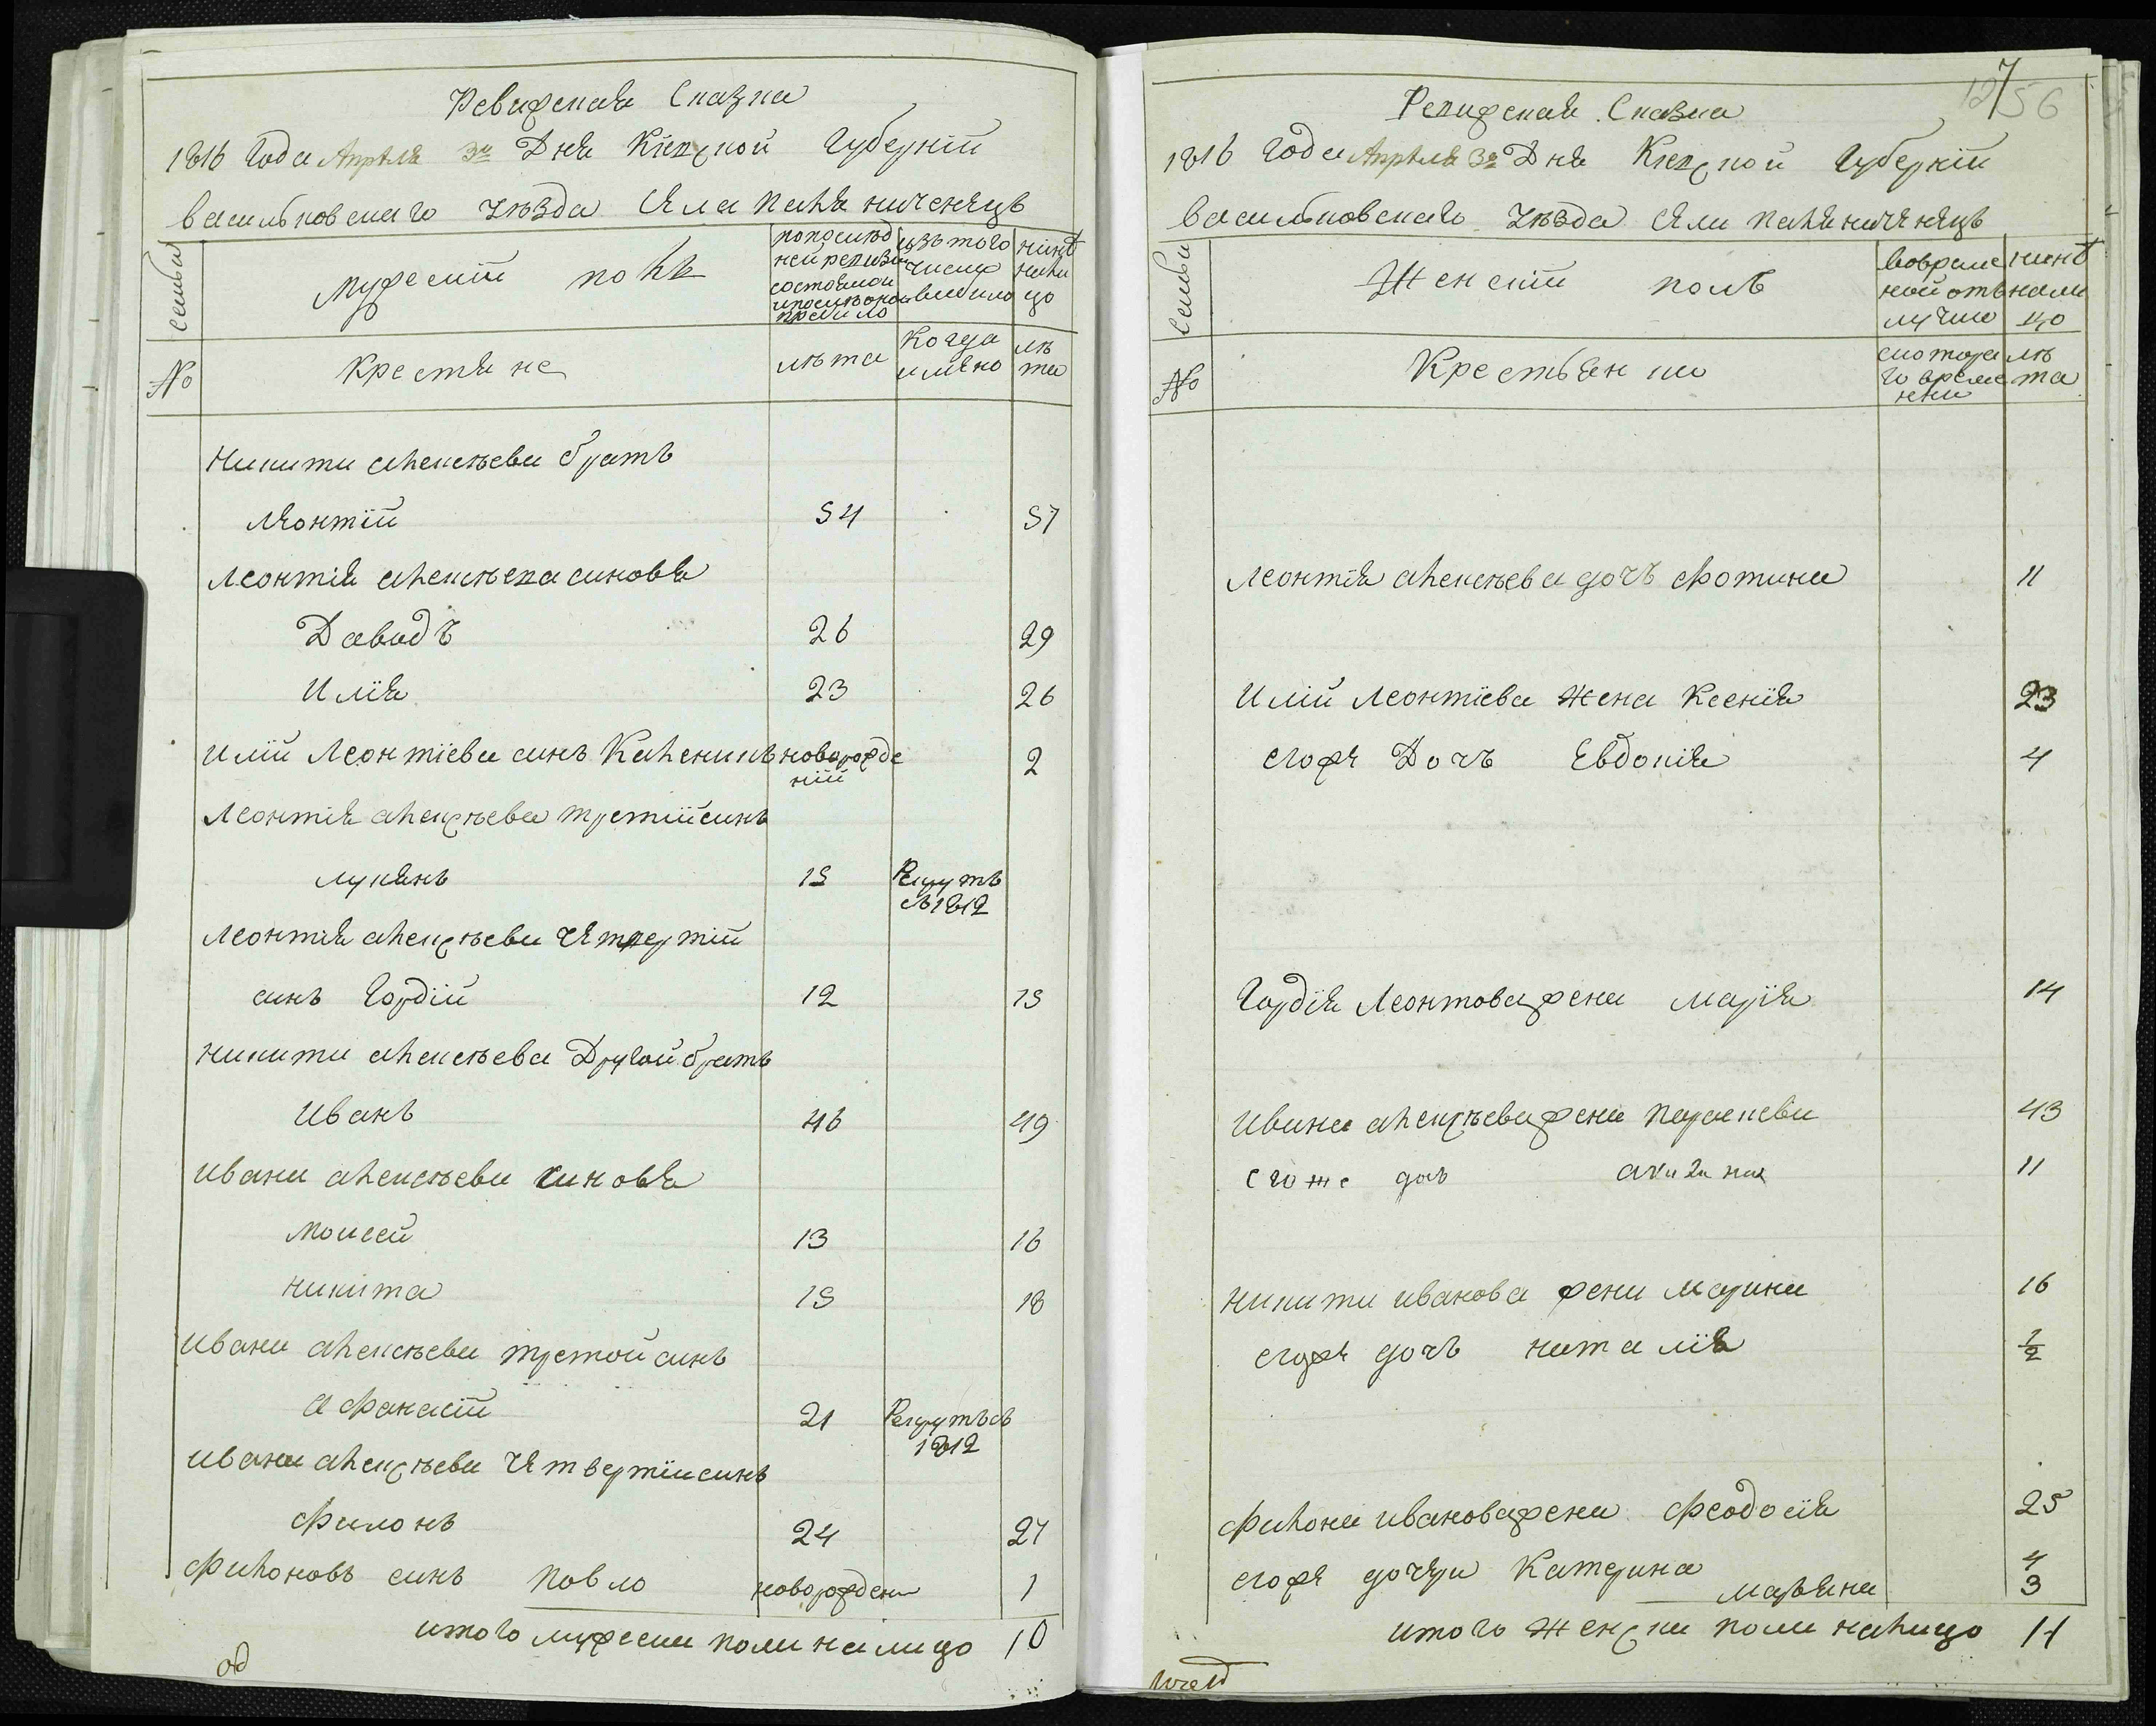 Ревизская Сказка
1816 Года Апреля 3го Дня Кіевской Губерніи
васильковскаго Уѣзда Села палянигенецъ
семьи
мужескій полъ
попослѣд
ней ревизіи
состояло и
послѣ оной
прибило
изъ того
числа
выбыло
нинѣ
нали
цо
№
Крестяне
лѣта
Когда
имено
лѣ
та
Никити алексѣева братъ
Леонтій 54 57
Леонтія алексѣева синовя
Давидъ 26 29
Илія 23 26
Иліи Леонтіева синъ Каленикъ новорожде
ній 2
Леонтія алексѣева третій синъ
лукянъ 15 Рекрутъ
съ 1812
Леонтія алексѣева Четвертій
синъ Гордій 12 15
Никити алексѣева Другой братъ
Иванъ 46 49
Ивана алексѣева синовя
Моисей 13 16
Никита 15 18
Ивана алексѣева третой синъ
Афанасій 21 Рекрутъ съ
1812
Ивана алексѣева Четвертій синъ
Филонъ 24 27
Филоновъ синъ Павло новорождени 1
итого мужеска пола налицо 10
7
12 56
Ревизская Сказка
1816 Года Апреля 3го Дня Кіевской Губерніи
васильковскаго Уѣзда Села
семьи
Женскій полъ
вовреме
ной отъ
лучке
нинѣ
нали
цо
№
Крестьянки
скоторо
го време
нени
лѣ
та
Леонтія алексѣева дочъ Фотина 11
Иліи Леонтіева Жена Ксенія 23
егоже Дочъ Евдокія 4
Гордія Леонтова жена Марія 14
Ивана алексѣева жена Параскева 43
егоже доч акилина 11
Никити иванова жена Марина 16
егоже дочъ наталія ½
Филона иванова жена Феодосія 25
егоже дочери Катерина 4
маріяна 3
итого Женска пола налицо 11